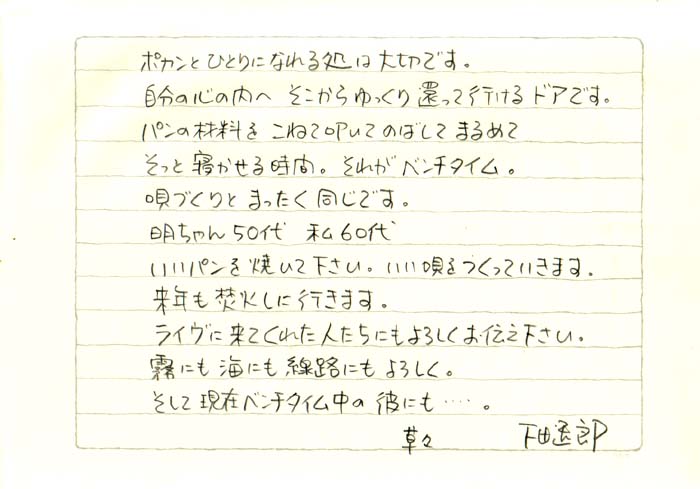 ポカンとひとりになれる処は大切です。
自分の心の内へ そこからゆっくり還って行けるドアです。
パンの材料を こねて叩いてのばしてまるめて
そっと寝かせる時間。それがベンチタイム。
唄づくりとまったく同じです。
明ちゃん50代 私60代
いいパンを焼いて下さい。いい唄をつくっていきます.
来年も焚火しに行きます。
ライヴに来てくれた人たちにもよろしくお伝え下さい。
霧にも海にも線路にもよろしく。
そして現在ベンチタイム中の彼にも……。
草々 下田逸郎